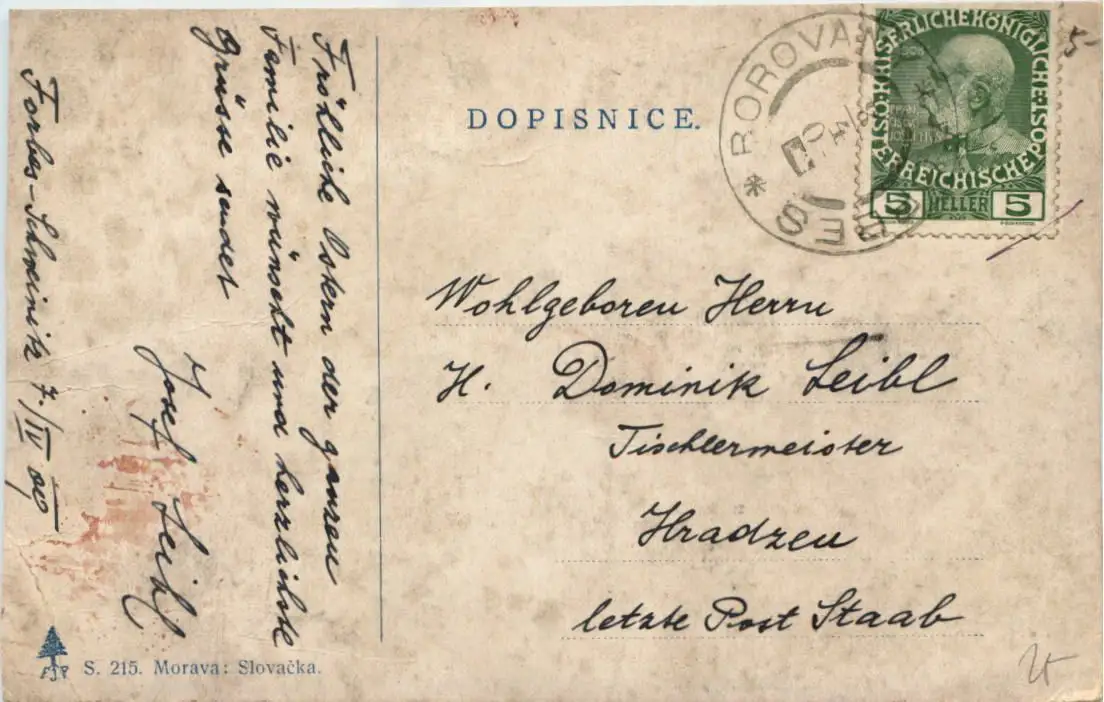 DOPISNICE.
KAISERLICHE KÖNIGLICHE
ÖSTERREICHISCHE POST
5 HELLER 5
BOROVANY
* FORBES *
5
Fröhliche Ostern der ganzen
Familie wünscht und herzlichste
Grüsse sendet
Josef Leibl
Forbes-Schweinitz 7./IV 09
Wohlgeboren Herrn
H. Dominik Leibl
Tischlermeister
Hradzen
letzte Post Staab
FJP
S. 215. Morava: Slovačka.